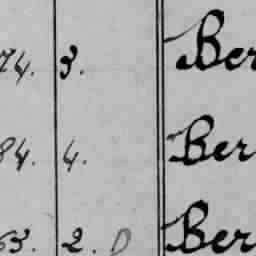 74. 3. Ber
84. 4. Ber
63. 2. Ber